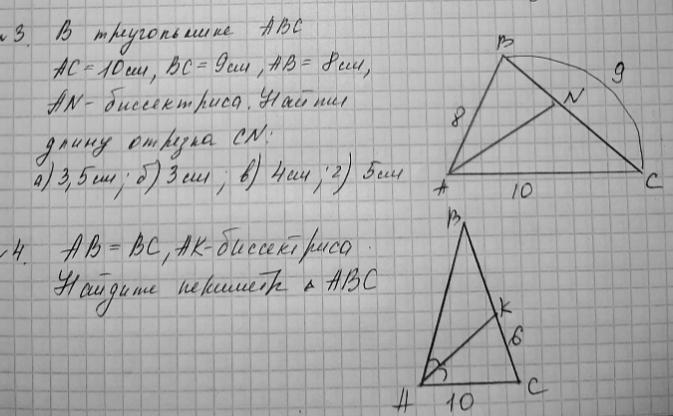 №3. В треугольнике ABC
AC = 10см, BC = 9см, AB = 8см,
AN - биссектриса. Найти
длину отрезка CN:
а) 3,5см; б) 3см; в) 4см; г) 5см
B
9
N
8
A
10
C
4. AB = BC, AK - биссектриса.
Найдите периметр △ ABC
B
K
6
A
10
C